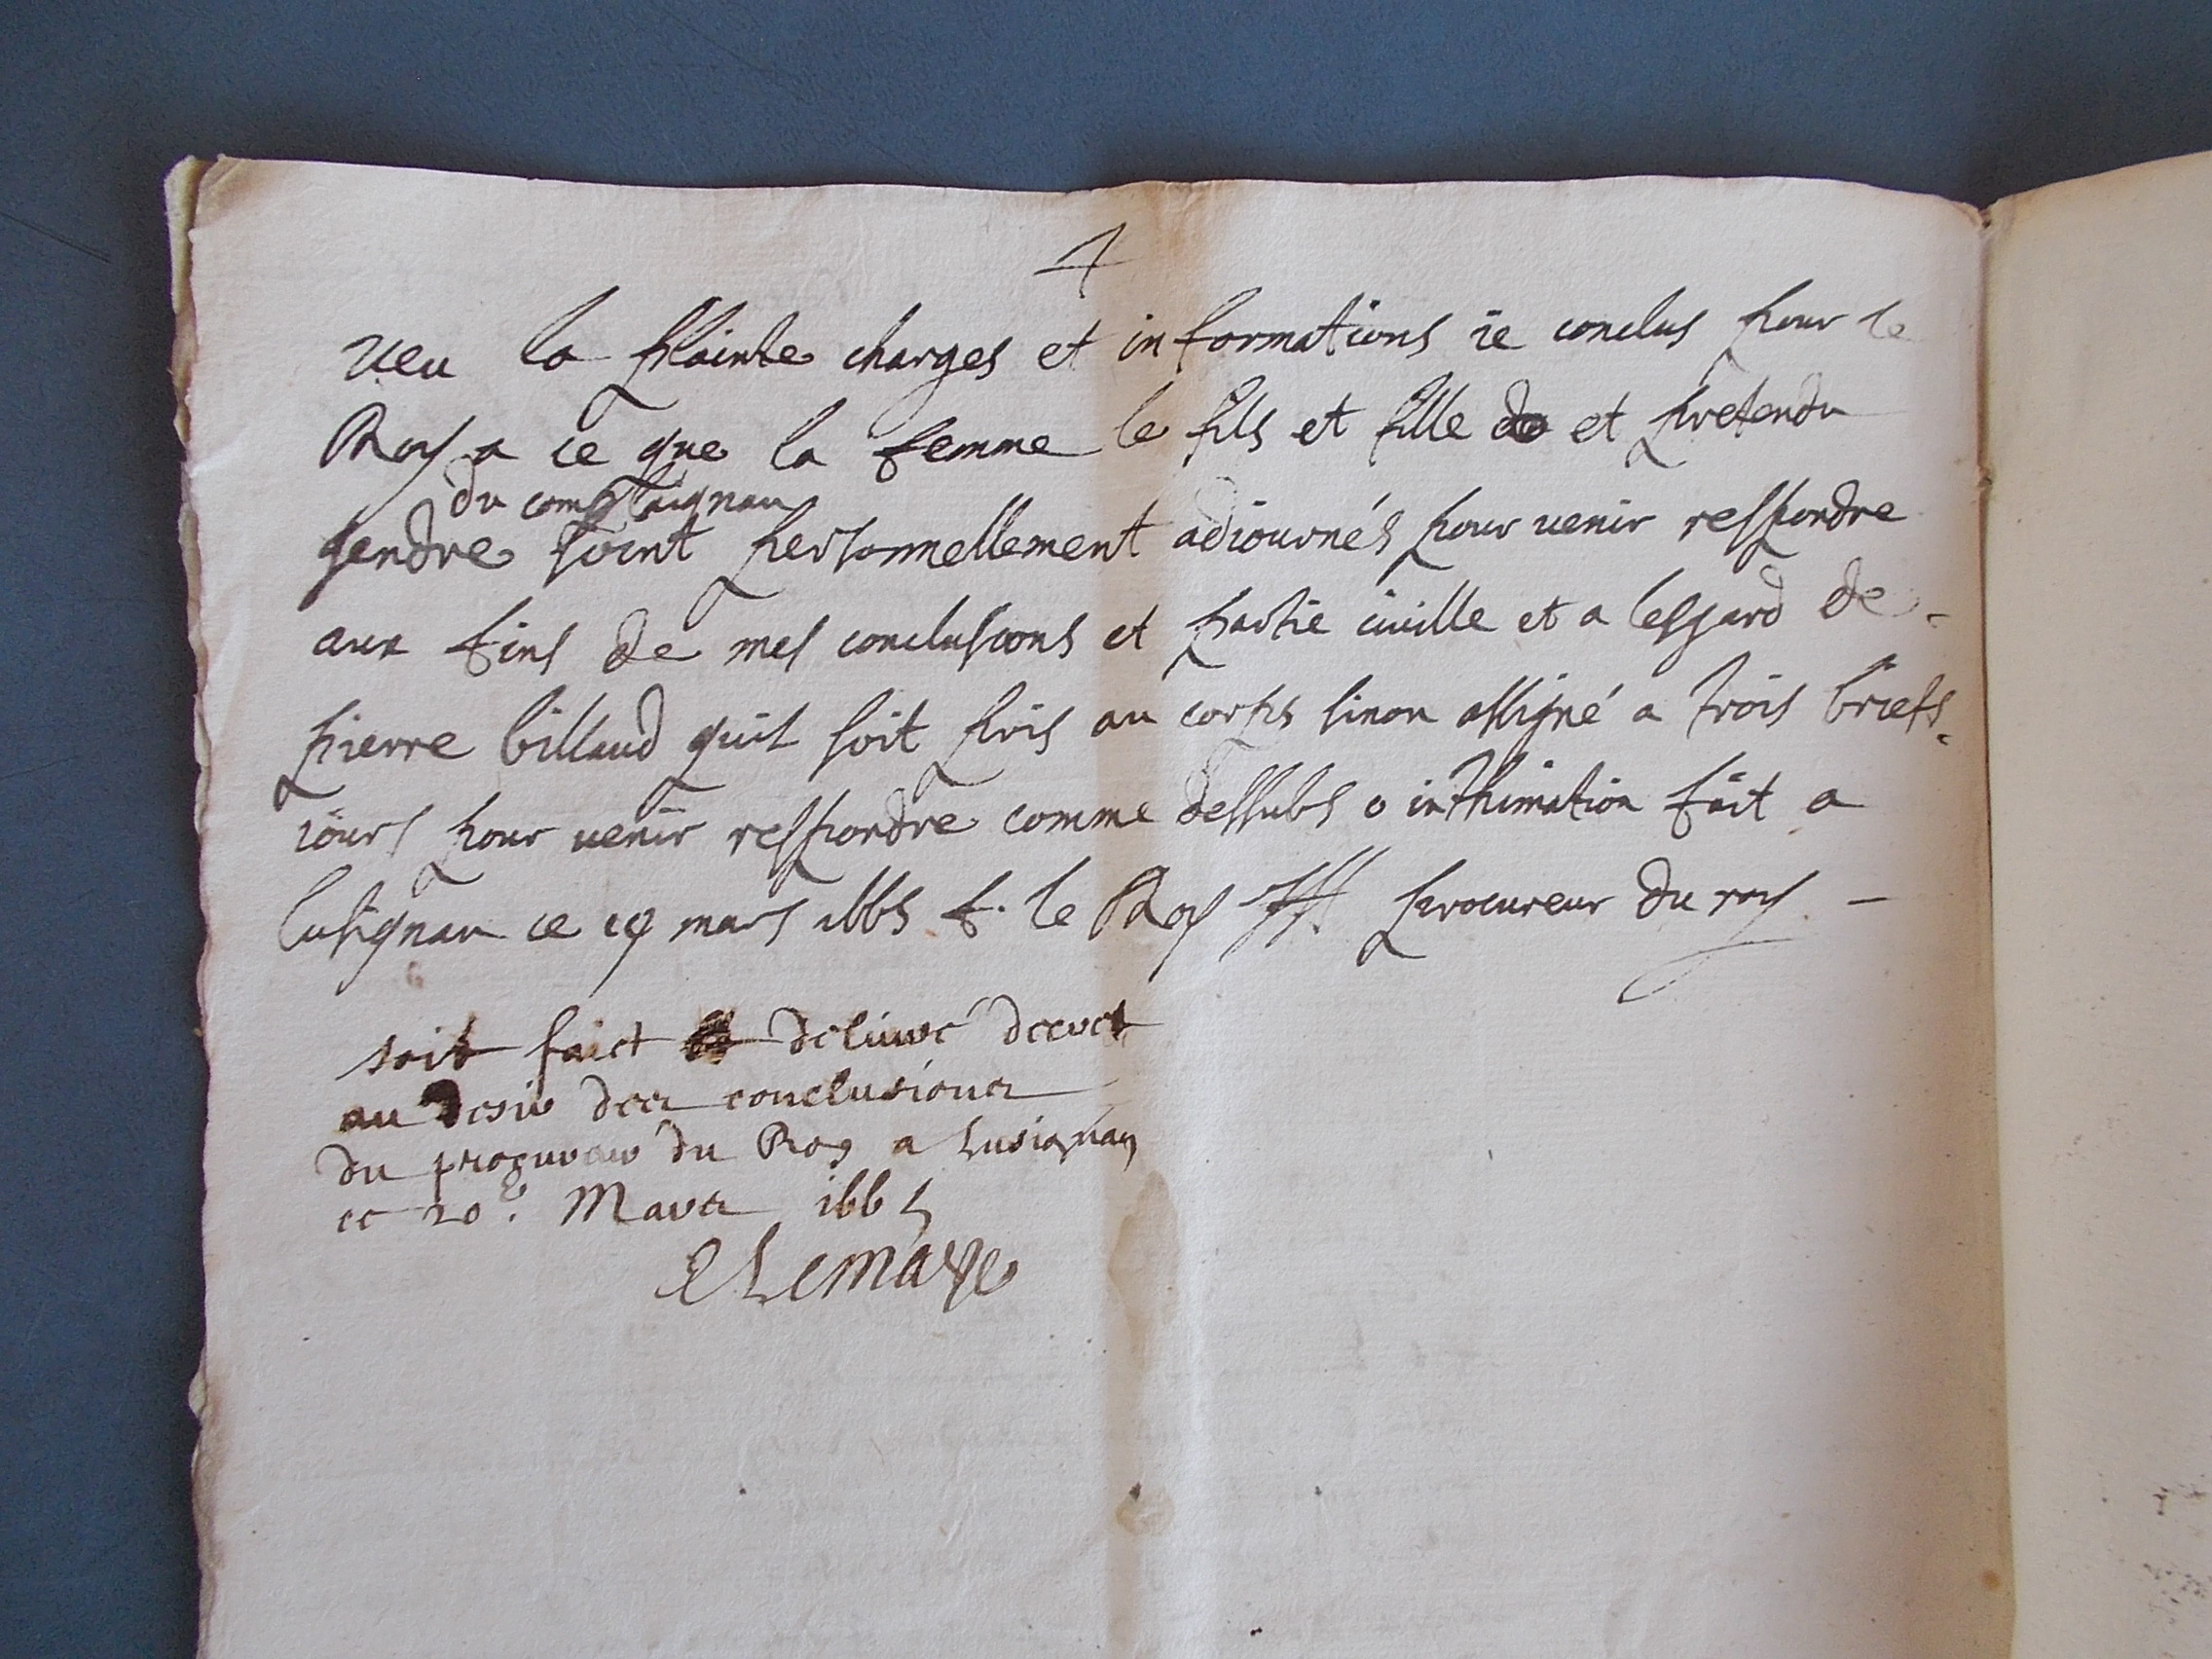 4
veu la plainte charges et informations ie conclus pour le
Roy a ce que la femme le fils et fille de et pretendu
du complaignan
gendre soint personnellement adiournés pour venir respondre
aux fins de mes conclusions et partie civille et a lesgard de
pierre billaud quil soit pris au corps sinon assigné a trois briefs
iours pour venir respondre comme dessubs o inthimation fait a
lusignan ce 19 mars 1665 f. le Roy procureur du roy
soit faict delivré decret
au desir des conclusions
du procureur du Roy a Lusignan
ce 20e. Mars 1665
Lemaye